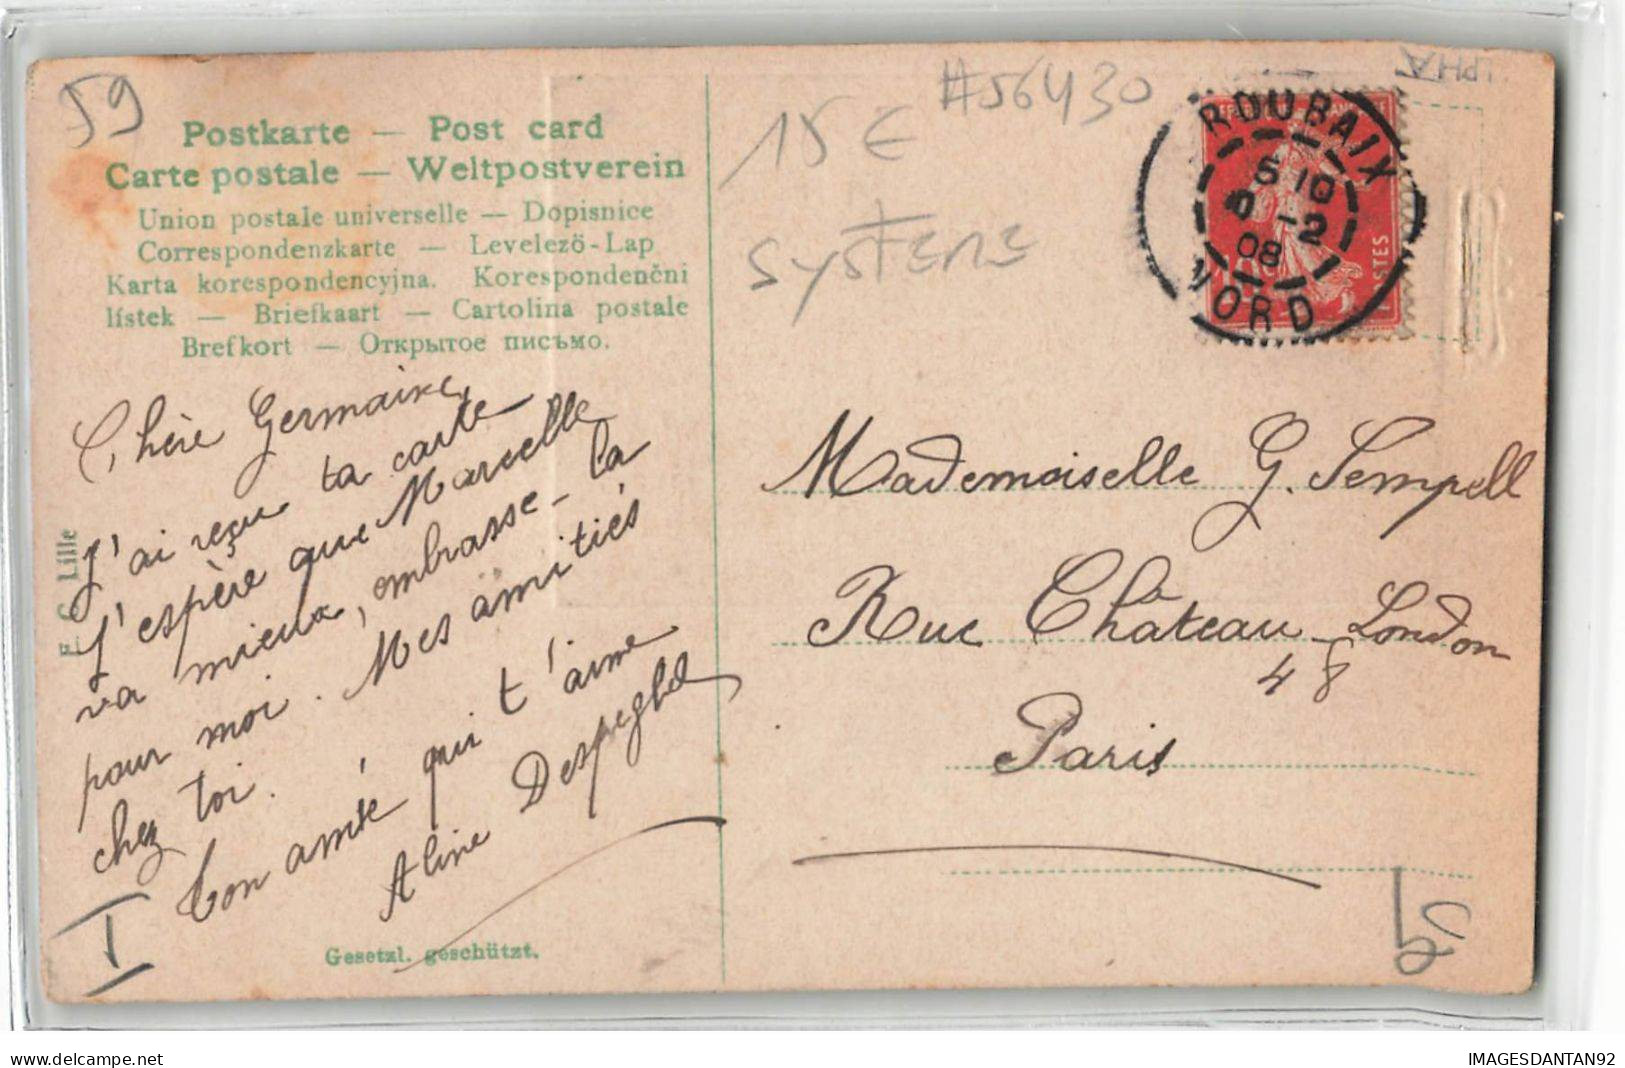 59
Postkarte — Post card
Carte postale — Weltpostverein
Union postale universelle — Dopisnice
Correspondenzkarte — Levelező-Lap
Karta korespondencyjna. Korespondenční
lístek — Briefkaart — Cartolina postale
Brefkort — Открытое письмо.
Chère Germaine,
J'ai reçu ta carte
J'espère que Marcelle
va mieux, embrasse-la
pour moi. Mes amitiés
chez toi.
Ton amie qui t'aime
Aline
I
Gesetzl. geschützt.
Lille
15 €
#56430
SYSTEME
ROUBAIX
5 10
-2
08
NORD
Mademoiselle G. Sempell
Rue Château-London
48
Paris
delcampe.net
IMAGESDANTAN92